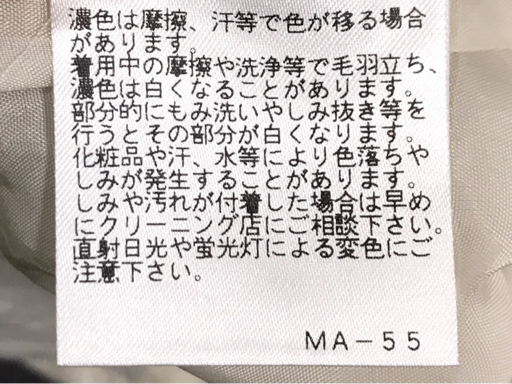 濃色は摩擦、汗等で色が移る場合
があります。
着用中の摩擦や洗浄等で毛羽立ち、
濃色は白くなることがあります。
部分的にもみ洗いやしみ抜き等を
行うとその部分が白くなります。
化粧品や汗、水等により色落ちや
しみが発生することがあります。
しみや汚れが付着した場合は早め
にクリーニング店にご相談下さい。
直射日光や蛍光灯による変色にご
注意下さい。
MA-55